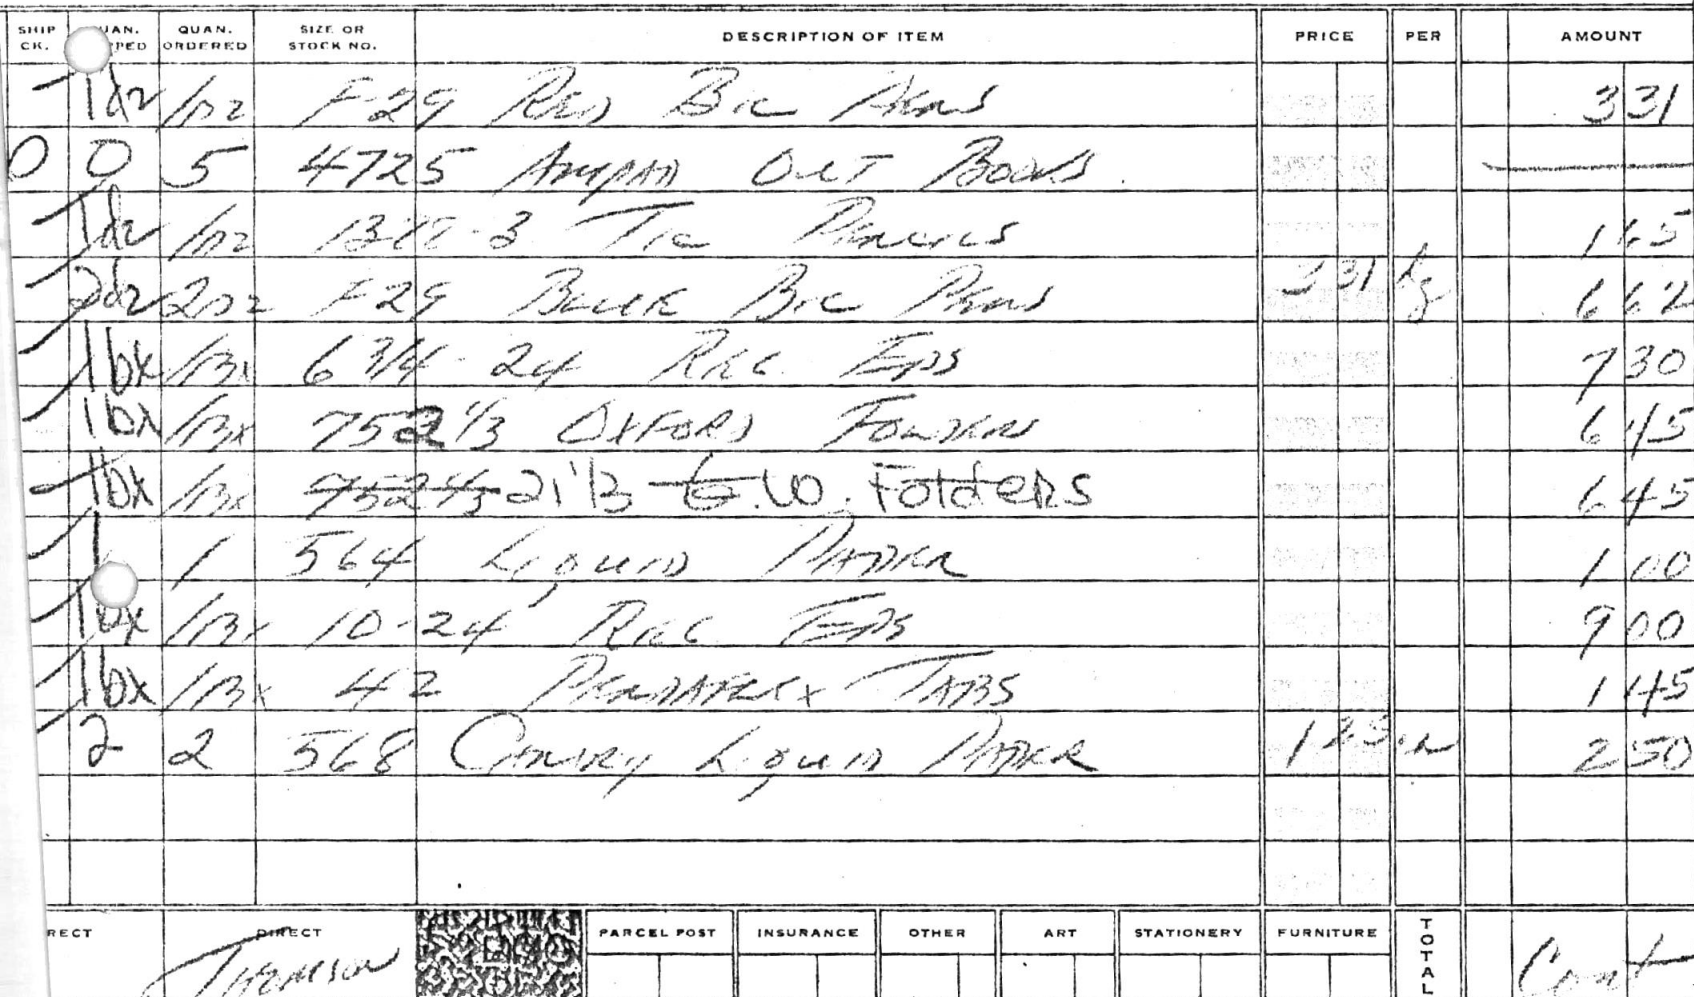 SHIP CK. QUAN. ORDERED SIZE OR STOCK NO. DESCRIPTION OF ITEM PRICE PER AMOUNT
1dz 1DZ F-29 RED BIC PENS 331
0 0 5 4725 AMPAD OUT BOOKS.
1dz 1DZ TIC PENCILS 165
2dz 2DZ F-29 BLUE BIC PENS 331 dz 662
1bx 1BX 6 3/4-24 REG. EPS 730
1bx 1BX 752 1/3 OXFORD FOLDERS 645
1bx 1BX 752 1/3 21/3 G.W. Folders 645
1 1 564 LIQUID PAPER 100
1bx 1BX 10-24 REG EPS 900
1bx 1BX 42 PENDAFLEX TABS 145
2 2 568 CANARY LIQUID PAPER 125 250
RECT DIRECT PARCEL POST INSURANCE OTHER ART STATIONERY FURNITURE TOTAL
THOMSON Cont